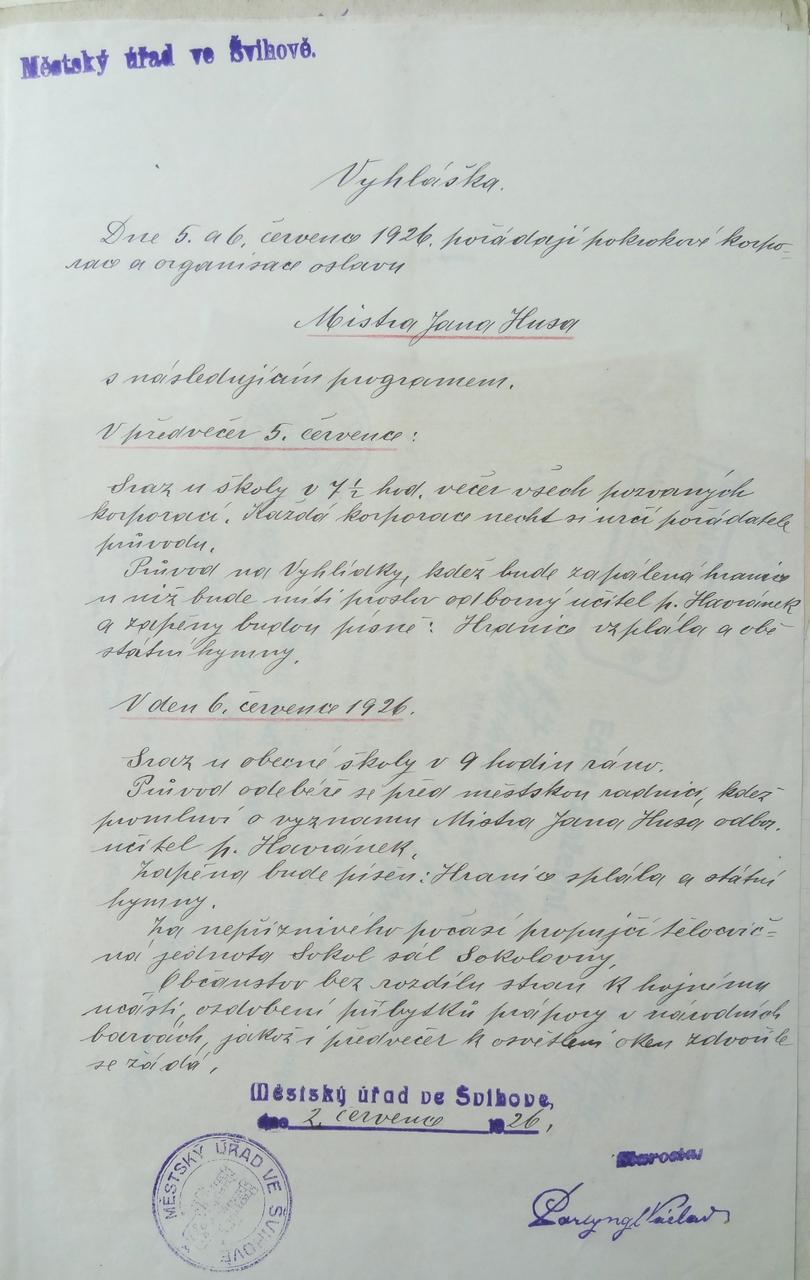 Městský úřad ve Švihově.
Vyhláška.
Dne 5. a 6. července 1926. pořádají pokrokové korpo=
race a organisace oslavu
Mistra Jana Husa
s následujícím programem.
V předvečer 5. července:
Sraz u školy v 7 1/2 hod. večer všech pozvaných
korporací. Každá korporace nechť si určí pořádatele
průvodu.
Průvod na Vyhlídky, kdež bude zapálená hranice
u níž bude míti proslov odborný učitel p. Havránek
a zapěny budou písně: Hranice vzplála a obě
státní hymny.
V den 6. července 1926.
Sraz u obecné školy v 9 hodin ráno.
Průvod odebéře se před městskou radnici, kdež
promluví o vyznamu Mistra Jana Husa odbor.
učitel p. Havránek.
Zapěna bude píseň: Hranice splála a státní
hymny.
Za nepříznivého počasí propujčí tělocvič=
ná jednota Sokol sál Sokolovny.
Občanstvo bez rozdílu stran k hojnému
učásti, ozdobení příbytků prápory v národních
barvách, jakož i předvečer k osvětlení oken zdvořile
se žádá.
Městský úřad ve Švihove,
dne 2. července 1926.
Starosta:
MĚSTSKÝ ÚŘAD VE ŠVIHOVĚ
Václav